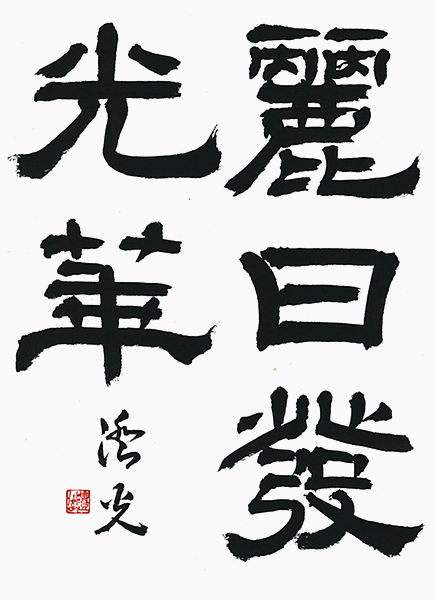 麗日發
光華
光